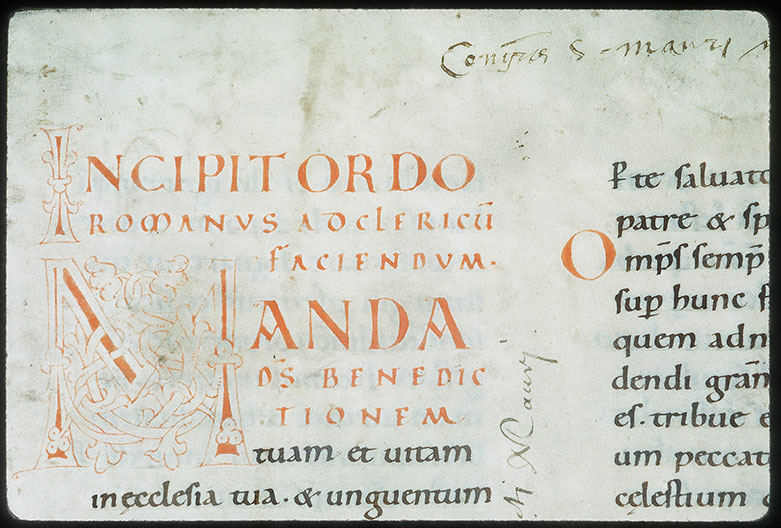 S. mauri
INCIPIT ORDO
ROMANVS AD CLERICŪ
FACIENDVM.
MANDA
DS̄ BENEDIC
TIONEM
tuam et uitam
in ecclesia tua. & unguentum
P̄ te saluato
patre & sp
Omp̄s semp̄
sup̱ hunc f
quem adn
dendi grān
es. tribue e
um peccat
celestium